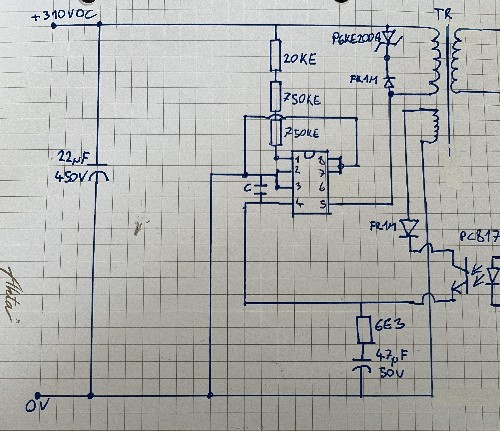 +310VDC
TR
P6KE200A
20KE
FR1M
750KE
750KE
22µF
450V
1
2
3
4
8
7
6
5
C
FR1M
PC817
6E3
47µF
50V
0V